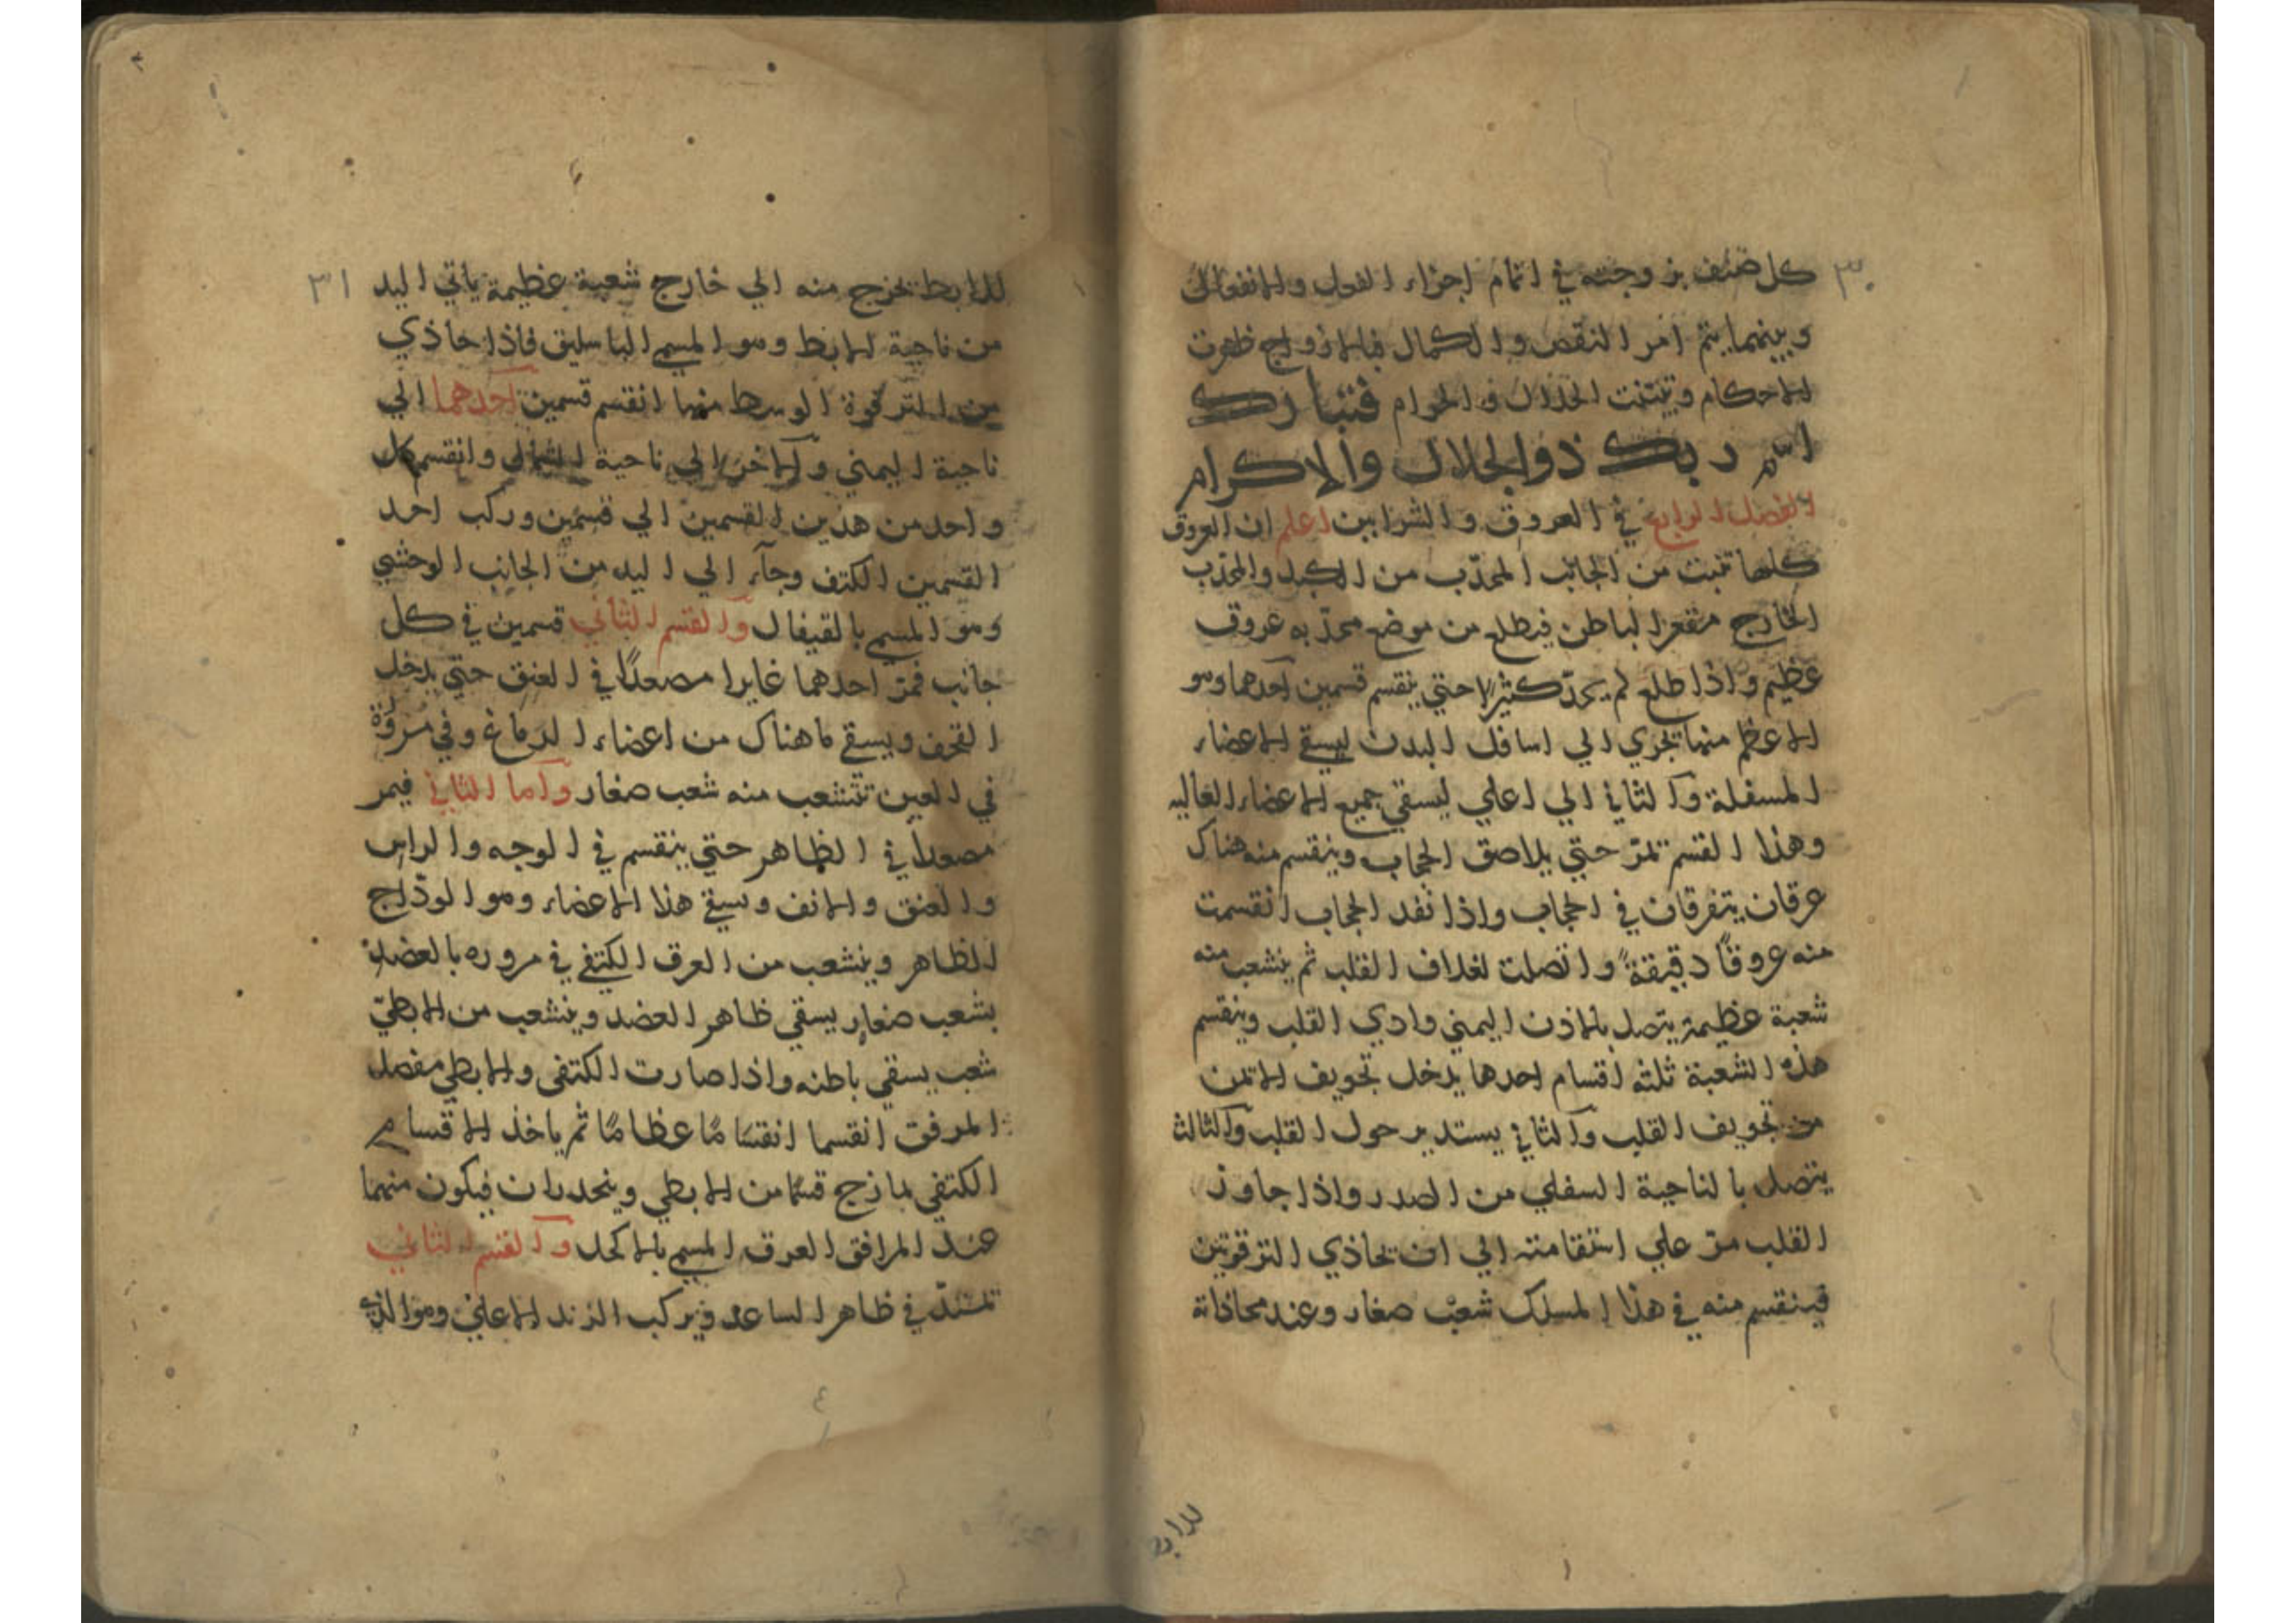 ٣٠
كل صنف بزوجته في اتمام اجزاء الفعل والانفعال
وبينهما يتم امر النقص والكمال فبالازواج ظهرت
الاحكام وتبتت الحلال والحرام فتبارك
اسم ربك ذو الجلال والاكرام
الفصل الرابع في العروق والشرايين اعلم ان العروق
كلها تنبت من الجانب المحدّب من الكبد والمحدّب
الخارج مقعر الباطن فيطلع من موضع محدّبه عروق
عظيم واذا طلع لم يحدّ كثيرا حتي ينقسم قسمين احدهما وهو
الاعظم منهما يجري الي اسافل البدن ليسقي الاعضاء
المسفلة والثاني الي اعلي ليسقي جميع الاعضاء العاليه
وهذا القسم تمرّ حتي يلاصق الحجاب وينقسم منه هناك
عرقان يتفرقان في الحجاب واذا نفد الحجاب انقسمت
منه عروقاً دقيقة واتصلت لغلاف القلب ثم ينشعب منه
شعبة عظيمة يتصل بالاذن اليمني وادي القلب وينقسم
هذه الشعبة ثلثه اقسام احدها يدخل تجويف الايمن
من تجويف القلب والثاني يستدير حول القلب والثالث
يتصل بالناحية السفلي من الصدر واذا جاوز
القلب مرّ علي استقامته الي ان تحاذي الترقوتين
فينقسم منه في هذا المسلك شعب صغار وعند محاذاة
للابط
٣١
للابط تخرج منه الي خارج شعبة عظيمة ياتي اليد
من ناحية الابط وهو المسمي الباسليق فاذا حاذي
من الترقوة الوسط منها انقسم قسمين احدهما الي
ناحية اليمني والاخر الي ناحية الشمال وانقسم كل
واحد من هذين القسمين الي قسمين وركب احد
القسمين الكتف وجآء الي اليد من الجانب الوحشي
وهو المسمي بالقيفال والقسم الثاني قسمين في كل
جانب فمرّ احدهما غايرا مصعدًا في العنق حتي يدخل
القحف ويسقي ما هناك من اعضاء الدماغ وفي مروره
في العين تتشعب منه شعب صغار واما الثاني فيمر
مصعداً في الظاهر حتي ينقسم في الوجه والراس
والعنق والانف وسقي هذا الاعضاء وهو الودّاج
الظاهر وينشعب من العرق الكتفي في مروره بالعضد
بشعب صغار يسقي ظاهر العضد وينشعب من الابطيّ
شعب يسقي باطنه واذا صارت الكتفي والابطي مفصل
المرفق انقسما انقسامًا عظامًا ثم ياخذ الاقسام
الكتفي يمازج قسمًا من الابطي وينحدران فيكون منهما
عند المرافق العرق المسمي بالاكحل والقسم الثاني
تمتدّ في ظاهر الساعد ويركب الزند الاعلي وهو الذي